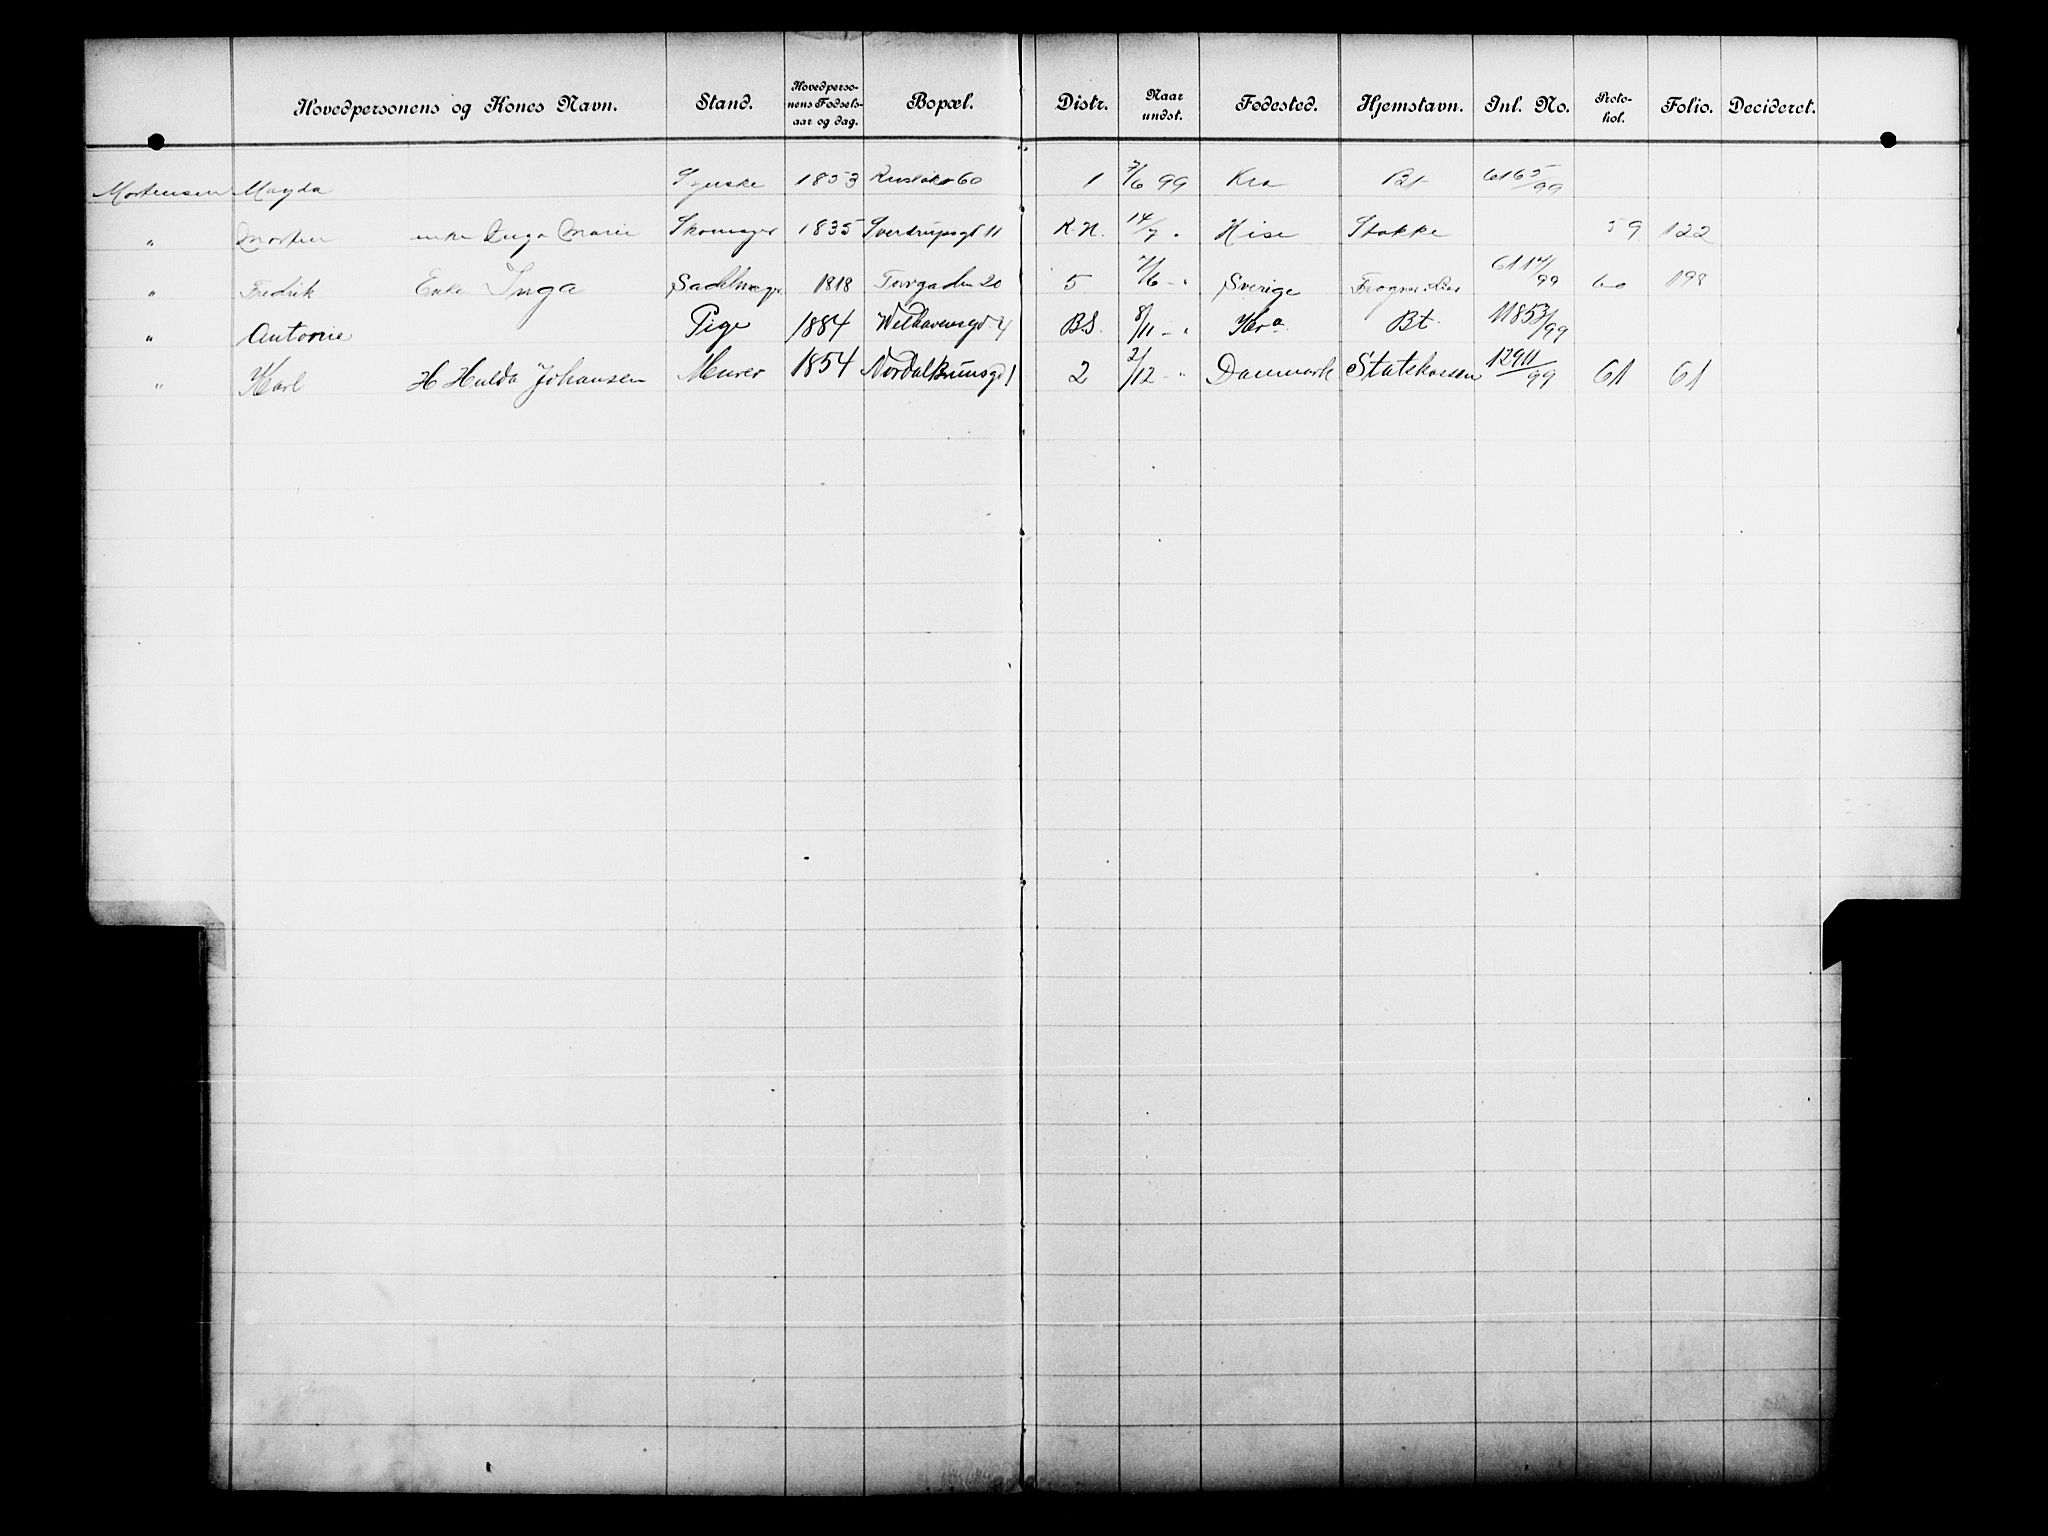 Hovedpersonens og Kones Navn. Stand. Hovedpersonens Fødselsaar og dag. Bopæl. Distr. Naar undst. Fødested. Hjemstavn. Inl. No. Protokol. Folio. Decideret.
Mortensen Magda Syerske 1853 60 1 7/6 99 Kra Bt 6165/99
" Morten enke Inga Marie Skomager 1835 Sverdrupsgt 11 K.N. 14/7 " Hisø Stokke 59 122
" Fredrik Enke Inga Sadelmager 1818 Torvgaden 20 5 7/6 - " Sverige 6114/99 60 198
" Antonie Pige 1884 Welhavensgd 4 BS. 8/11 - " Kra Bt. 11853/99
" Karl H Hulda Johansen Murer 1854 Nordal Brunsgd 1 2 2/12 - " Danmark Statskassen 12911/99 61 61